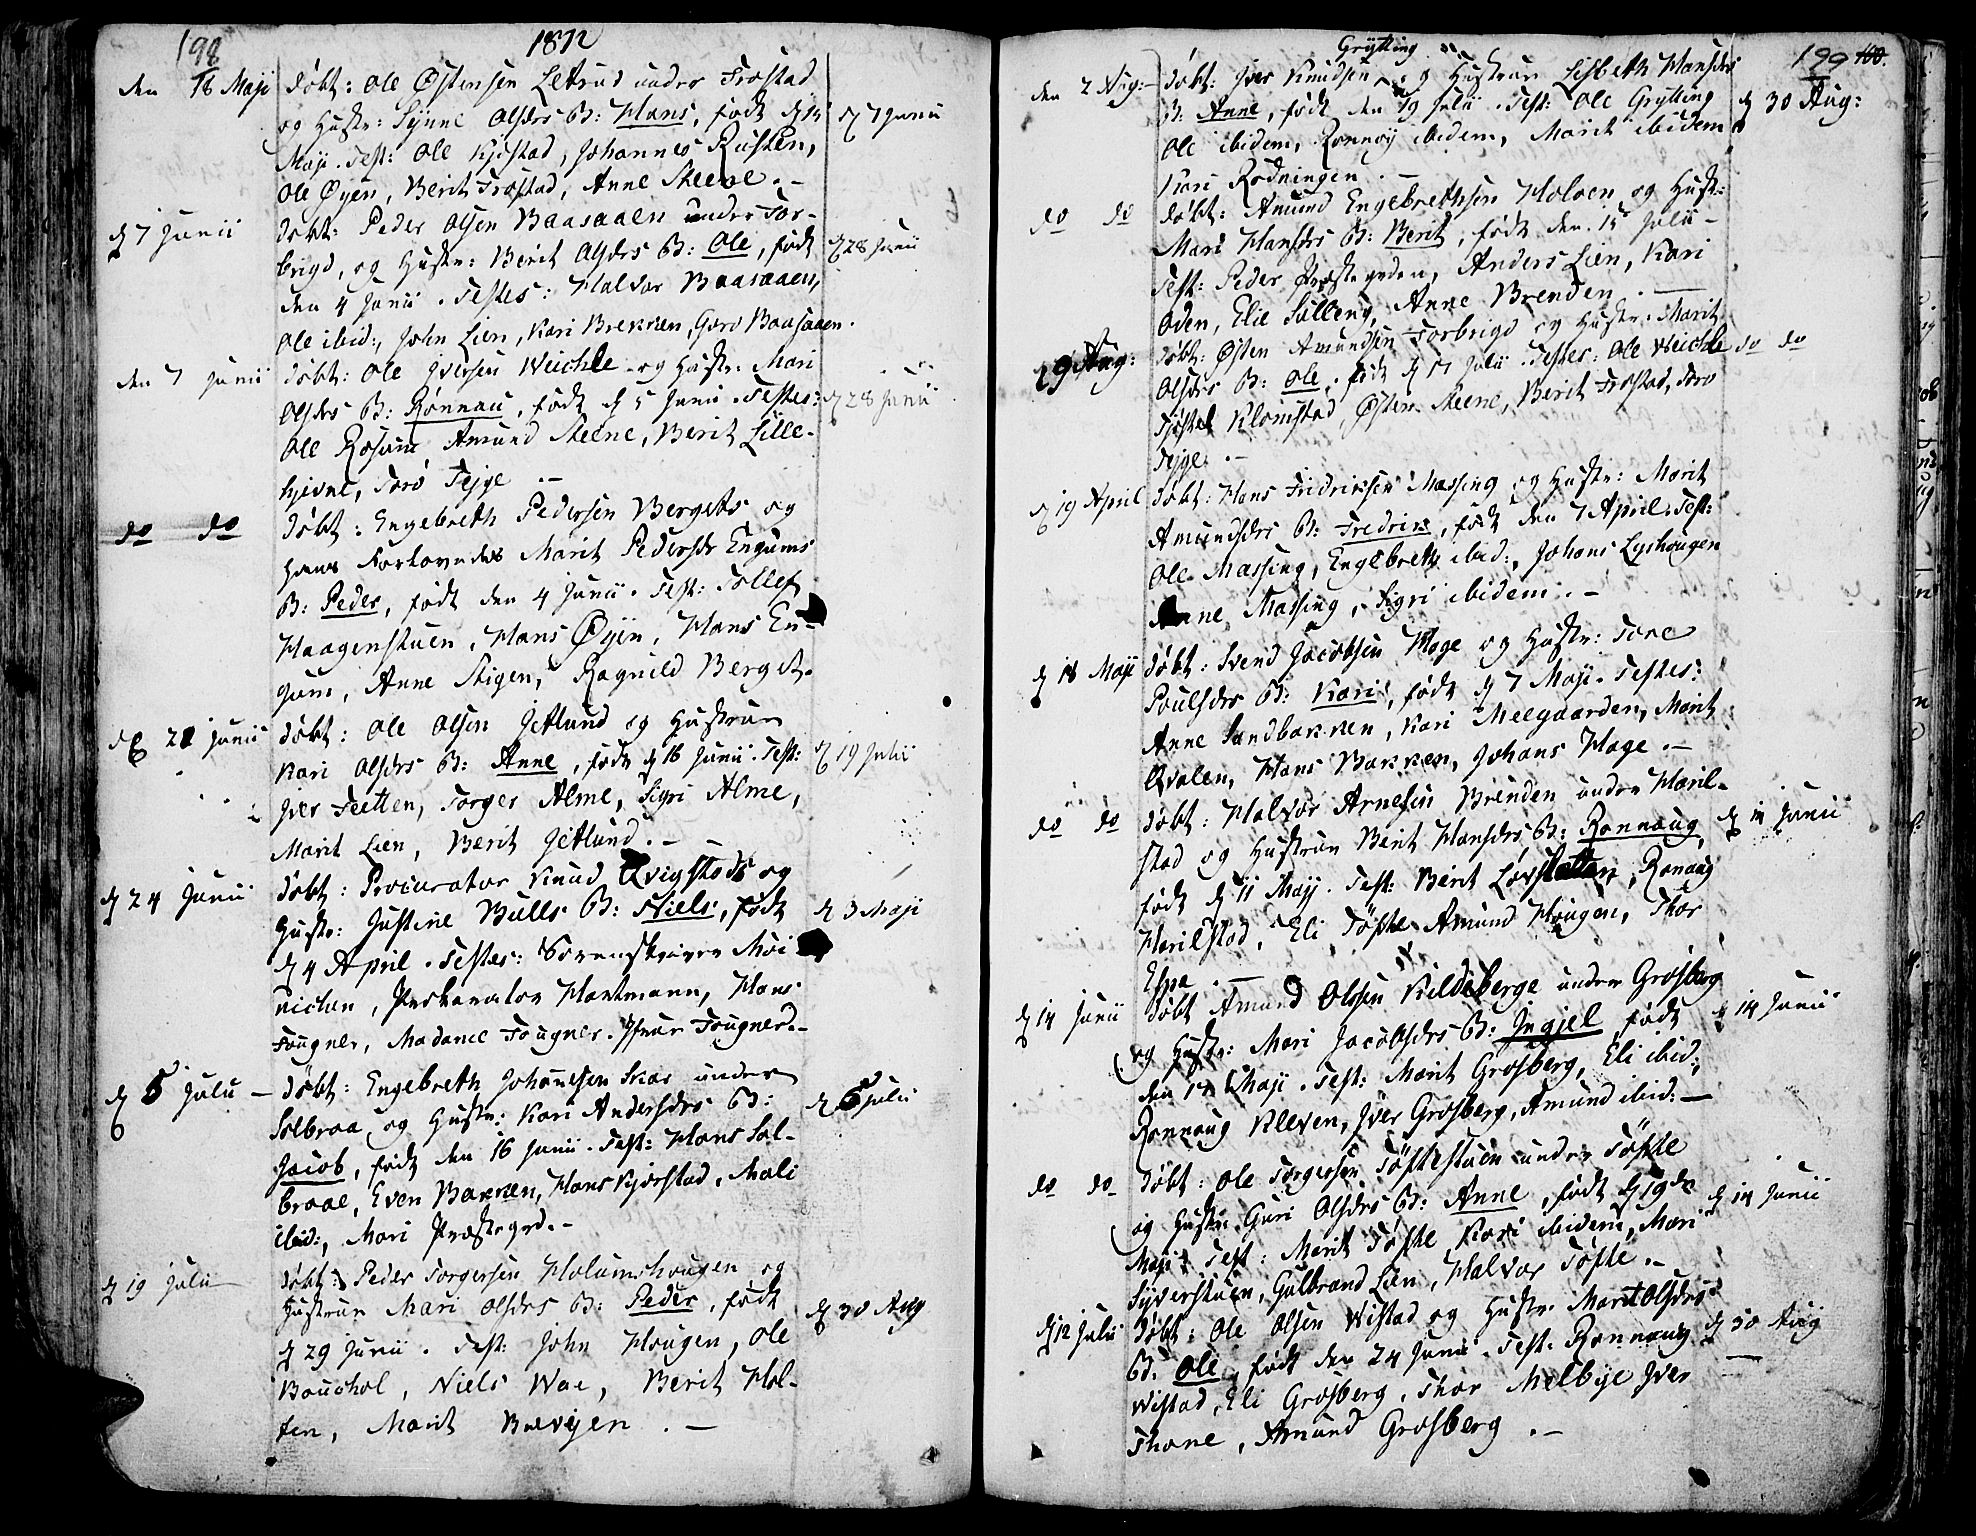 198
1812
den 18 Maji döbt: Ole Østensen Letrud under Frostad
og Hustr: Synne Olsdrs B: Hans, födt d 14 d 7 Junii
Maji. Test: Ole Kjöstad, Johannes Rusten,
Ole Øyen, Berit Frostad, Anne Steene. -
d 7 Junii döbt: Peder Olsen Baasaaen under For-
brigd, og Hustr: Berit Olsdrs B: Ole, födt d 28 Junii
den 4 Junii. Testes: Halvor Baasaaen,
Ole ibid:, John Lien, Kari Brekken, Guro Baasaaen.
den 7 Junii döbt: Ole Iversen Weichle og Hustr: Mari
Olsdrs B: Rönnau, födt d 5 Junii. Testes: d 28 Junii
Ole Rosum, Amund Steene, Berit Lille-
hjevne, Toro Tejge -
do do döbt: Engebreth Pedersen Bergets og
hans Forlovedes Marit Pedersdr Engums
B: Peder, födt den 4 Junii. Test: Tollef
Haagenstuen, Hans Øyen, Hans En-
gum, Anne Stigen, Ragnild Berget.
d 21 Junii döbt: Ole Olsen Jetlund og Hustrue
Kari Olsdrs B: Anne, födt d 16 Junii. Test: d 19 Julii
Iver Feetten, Torger Alme, Sigri Alme,
Marit Lien, Berit Jetlund. -
d 24 Junii döbt: Procurator Knud Qvigstads og
Hustr: Justine Bulls B: Niels, födt d 3 Maji
d 4 April. Testes: Sorenskriver Moi-
nichen, Prokurator Hartmann, Hans
Fougner, Madame Fougner. Jfrue Fougner. -
d 5 Julii - döbt: Engebreth Johannesen Skar under
Solbraa og Hustr: Kari Andersdrs B: d 6 Julii
Jacob, födt den 16 Junii. Test: Hans Sol-
braae, Even Bakken, Hans Kjörstad, Mali
ibid:, Mari Præstegrd. -
d 19 Julii döbt: Peder Torgersen Holumshougen og
Hustrue Mari Olsdrs B: Peder, födt d 30 Aug
d 29 Junii. Test: John Hougen, Ole
Bouchol, Niels Wae, Berit Hol-
ten, Marit Bævejen. -
199 400.
Grytting
den 2 Aug: - döbt: Iver Knudsen og Hustrue Lisbeth Hansdrs
B: Anne, födt den 19 Julii. Test: Ole Grytting d 30 Aug:
Ole ibidem, Ronnøy ibidem, Marit ibidem
Kari Rødningen. -
do do döbt: Amund Engebrethsen Holoen og Hustr:
Mari Hansdrs B: Berit, födt den 15 Julii -
Test: Peder Præstegrden, Anders Lien, Kari
Oden, Elie Sulleng, Anne Brenden. -
d 9 Aug: döbt: Østen Amundsen Forbrigd og Hustr: Marit
Olsdrs B: Ole, födt d 17 Julii. Testes: Ole Weichle do do
Tjöstel Klomstad, Østen Steene, Berit Frostad, Toro
Tejge. -
d 19 April döbt: Hans Fridriksen Massing og Hustr: Marit
Amundsdrs B: Fredrik, födt den 7 April. Test:
Ole Massing, Engebreth ibid:, Johans Lyshougen
Anne Massing, Sigri ibidem. -
d 18 Maji döbt: Svend Jacobsen Hage og Hustr: Tore
Poulsdrs B: Kari, födt d 7 Maji. Testes:
Anne Sandbakken, Kari Melgaarden, Marit
Qvalen, Hans Bakken, Johans Hage. -
do do döbt: Halvor Arnesen Brenden under Haril-
stad og Hustrue Berit Hansdrs B: Rannaug, d 14 Junii
födt d 11 Maji. Test: Berit Lövsletten, Ronaug
Harilstad, Eli Töfte Amund Hougen, Thor
Espe. -
d 14 Junii döbt Amund Olssen Kildeberge under Grosberg
og Hustr: Mari Jacobsdrs B: Ingjel födt d 14 Junii
den 17 Maji. Test: Marit Grosberg, Eli ibid:,
Rannaug Kleven, Iver Grosberg, Amund ibid: -
do do döbt: Ole Torgersen Töftestuen under Töfte
og Hustr: Guri Olsdrs B: Anne, födt d 19de d 14 Junii
Maji. Test: Marit Töfte Kari ibidem, Mari
Syverstuen, Gulbrand Lien, Halvor Töfte. -
d 12 Julii döbt: Ole Olsen Wistad og Hustr Marit Olsdrs
B: Ole, födt den 24 Junii. Test: Rannaug d 30 Aug
Wistad, Eli Grosberg, Thor Melbye Iver
Thone, Amund Grosberg. -